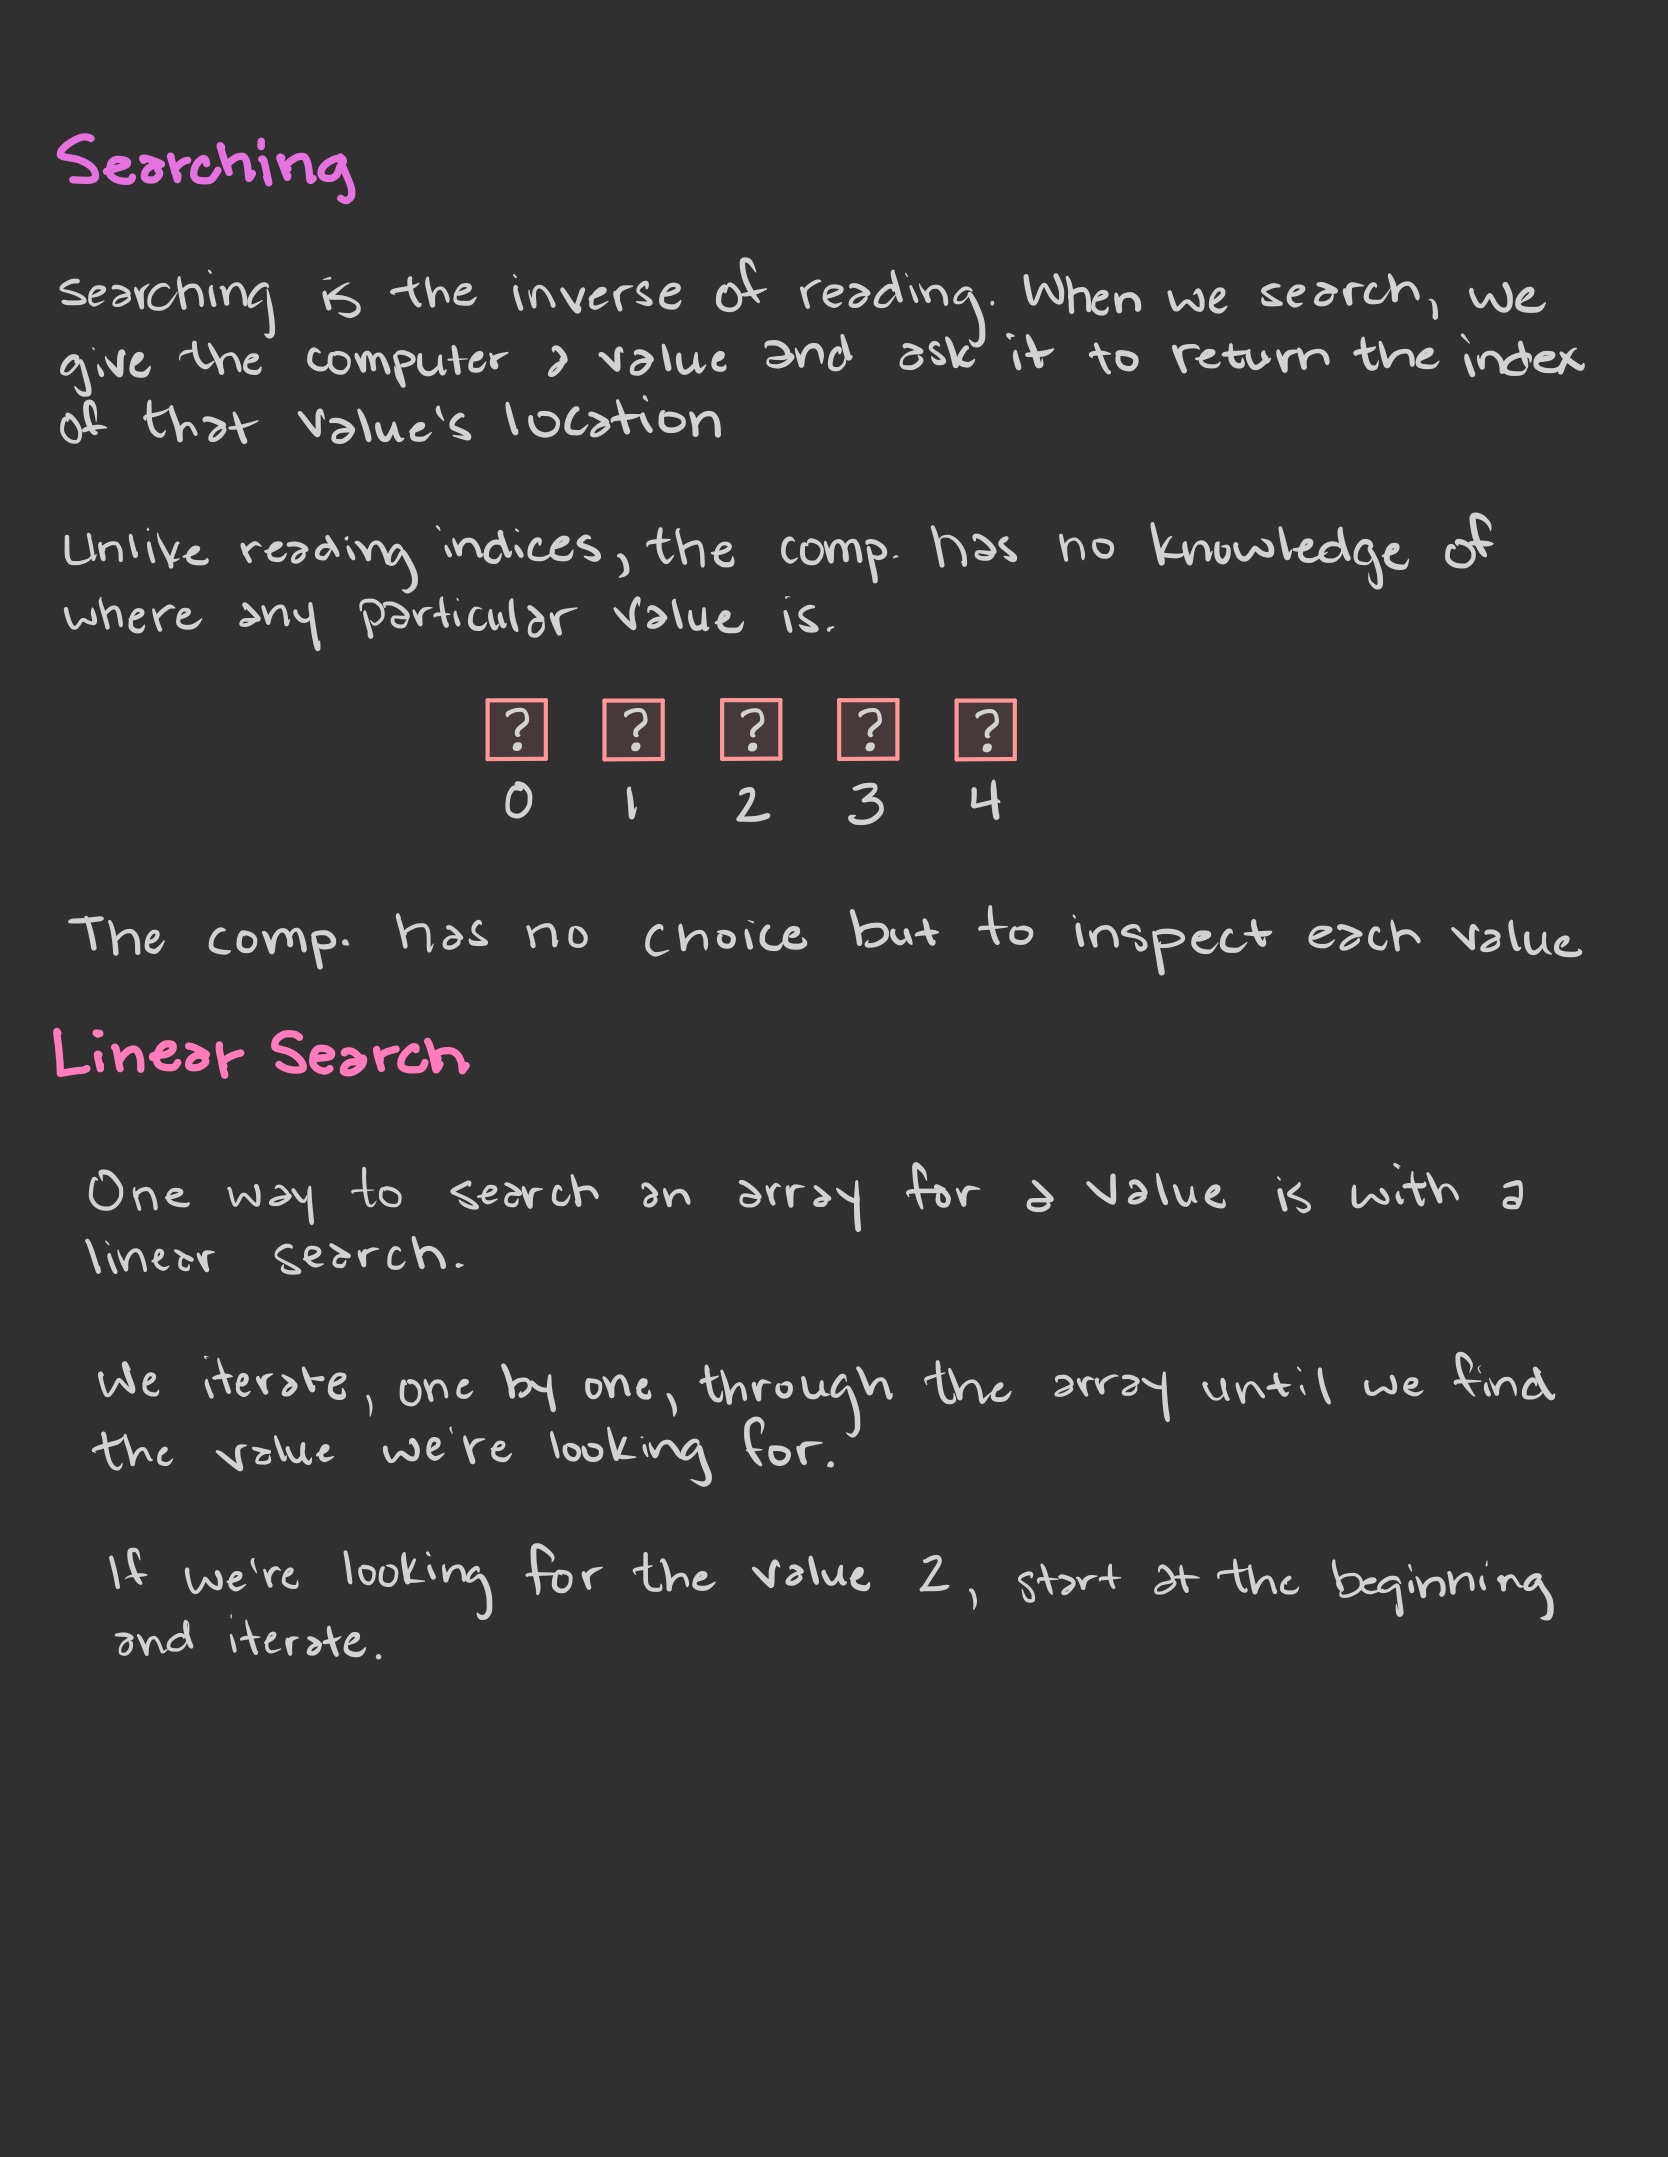 Searching
Searching is the inverse of reading. When we search, we
give the computer a value and ask it to return the index
of that value's location
Unlike reading indices, the comp. has no knowledge of
where any particular value is.
? ? ? ? ?
0 1 2 3 4
The comp. has no choice but to inspect each value
Linear Search
One way to search an array for a value is with a
linear search.
We iterate, one by one, through the array until we find
the value we're looking for.
If we're looking for the value 2, start at the beginning
and iterate.